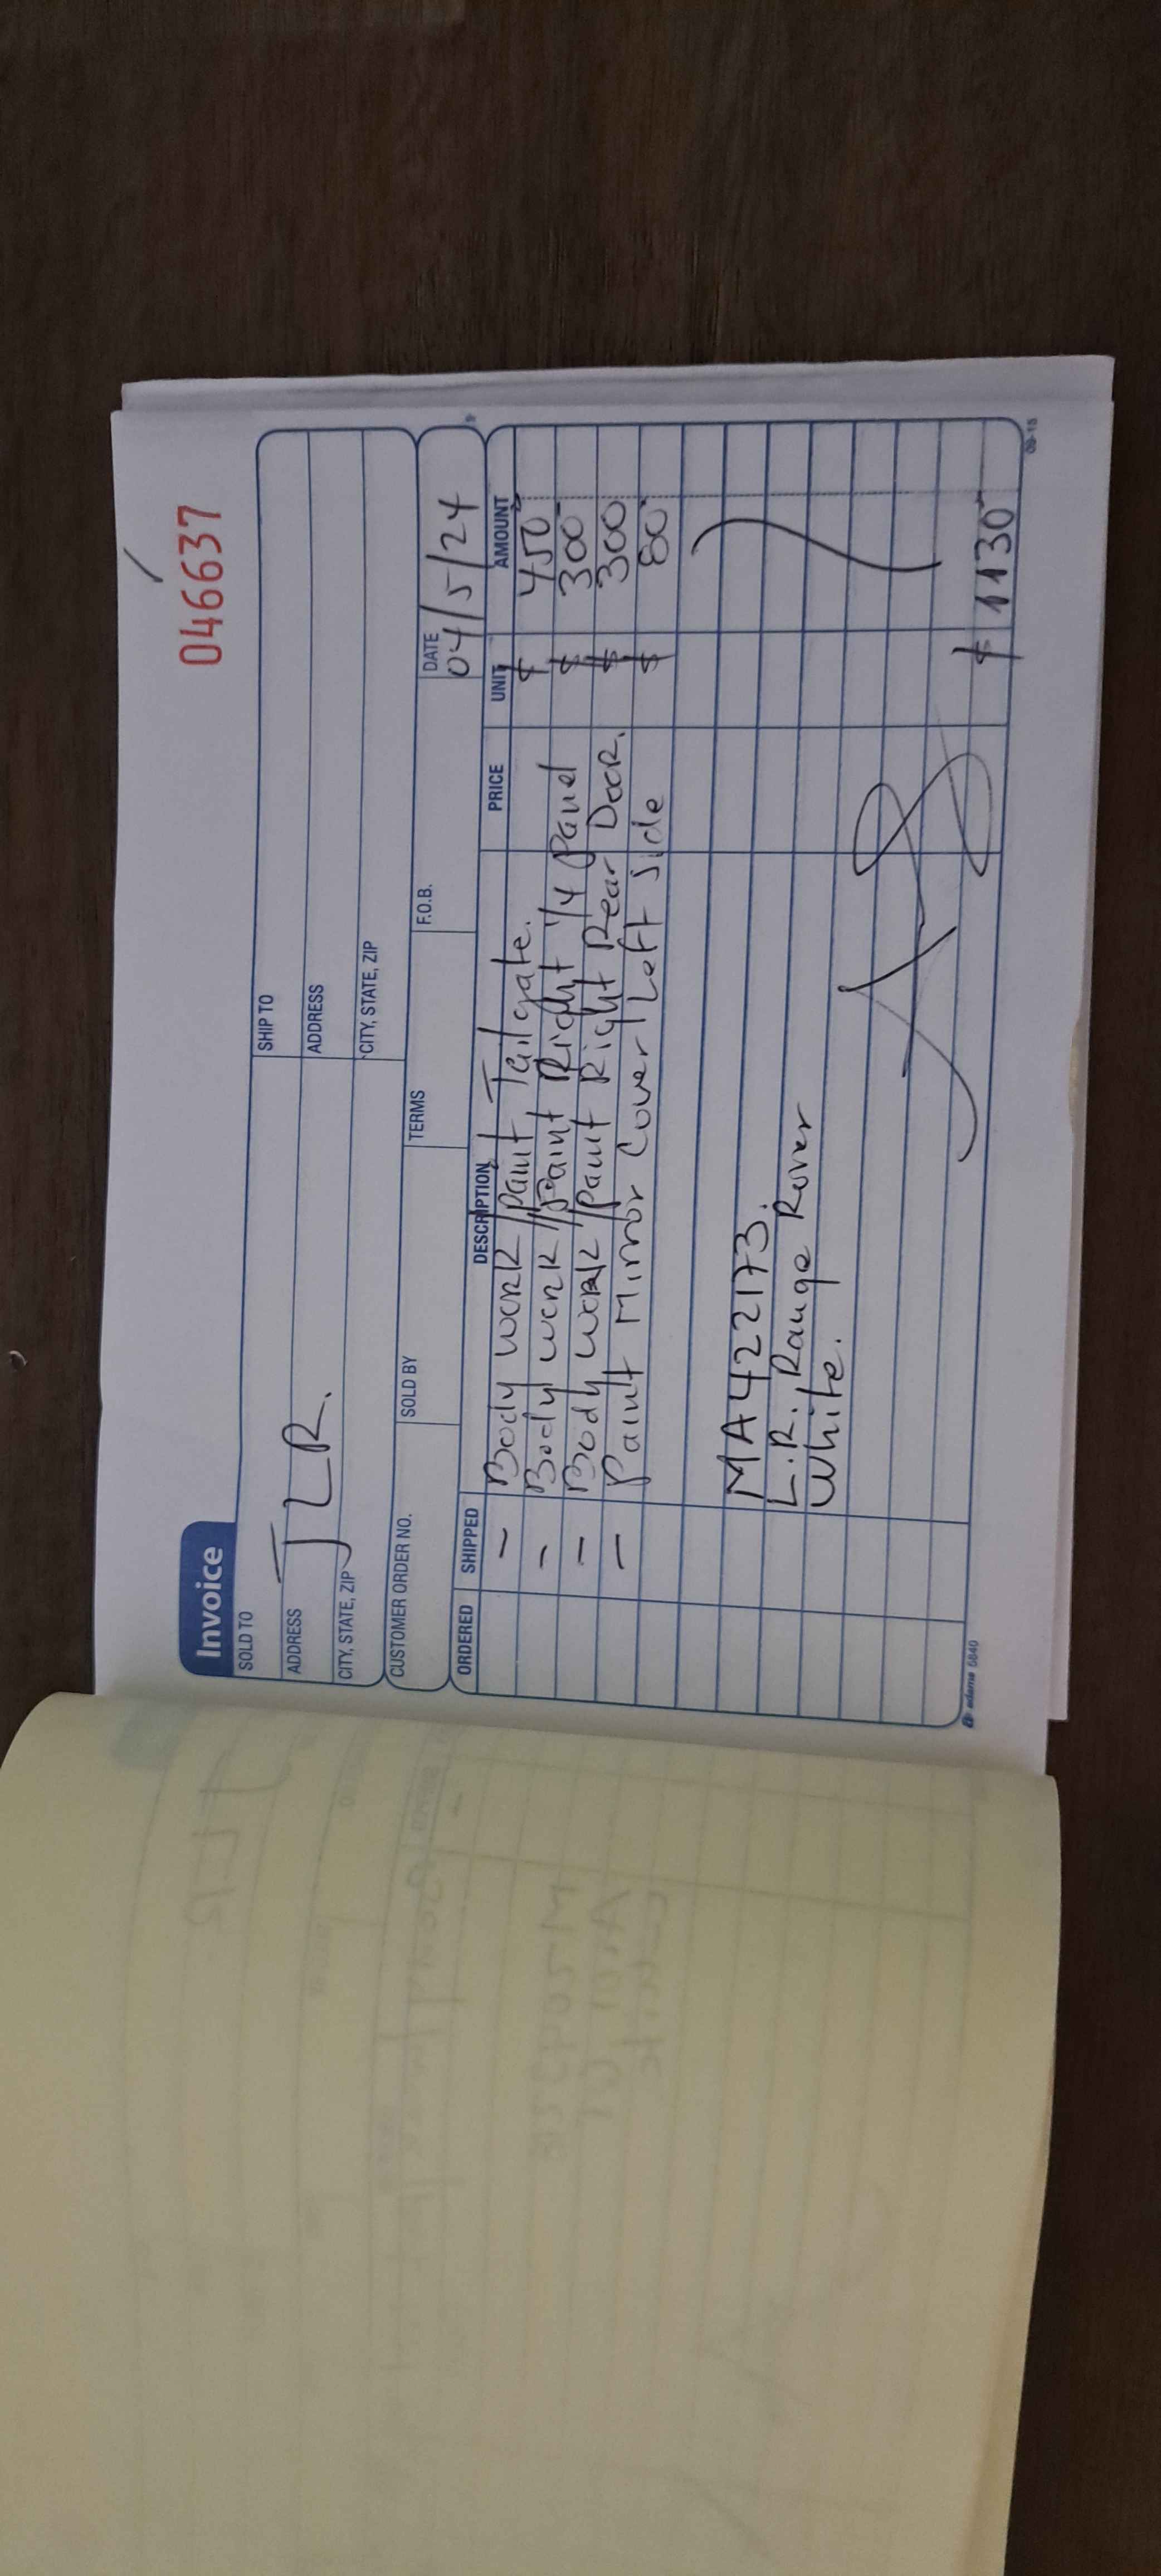 046637
Invoice
SOLD TO
SHIP TO
JLR.
ADDRESS
ADDRESS
CITY, STATE, ZIP
CITY, STATE, ZIP
CUSTOMER ORDER NO. SOLD BY TERMS F.O.B. DATE
04/5/24
ORDERED SHIPPED DESCRIPTION PRICE UNIT AMOUNT
- Body work/paint Tailgate. $ 450
- Body work/paint Right 1/4 Panel $ 300
- Body work/paint Right Rear Door. $ 300
- Paint Mirror Cover Left Side $ 80
MA422173.
L.R. Range Rover
White.
$ 1130
adams 5840
09-15